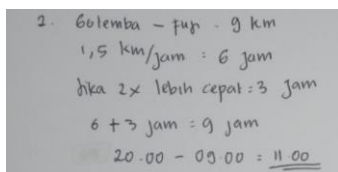 2. Golemba - pup - 9 km
1,5 km/jam : 6 jam
Jika 2x lebih cepat : 3 jam
6 + 3 jam : 9 jam
20.00 - 09.00 : 11.00